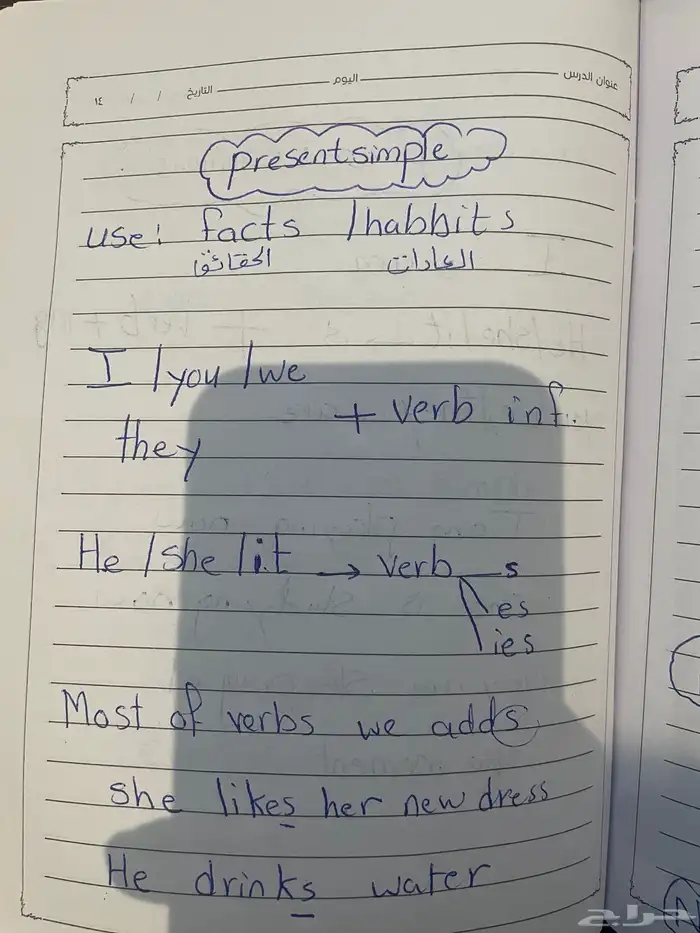 عنوان الدرس اليوم التاريخ / / ١٤
present simple
use: facts / habbits
الحقائق العادات
I / you / we
+ verb inf.
they
He / she / it → verb s
es
ies
Most of verbs we add s
she likes her new dress
He drinks water
حراج